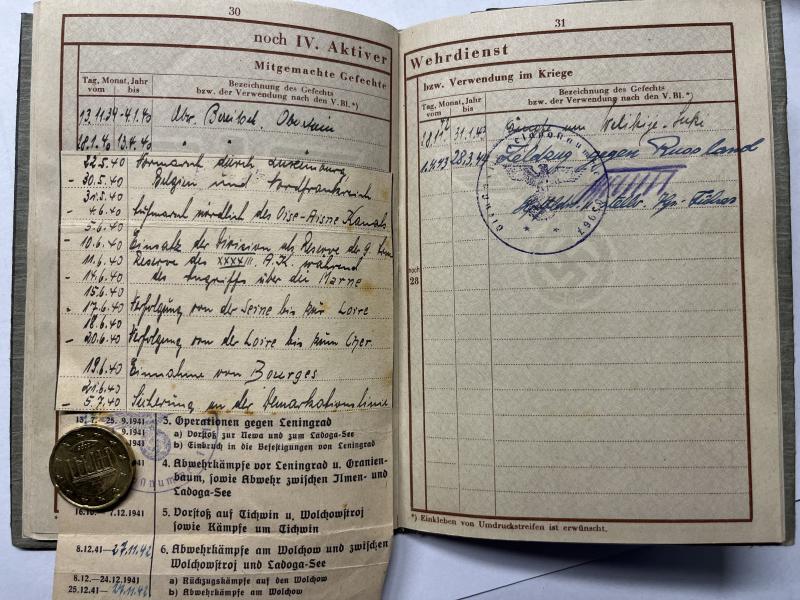 30
noch IV. Aktiver
Mitgemachte Gefechte
Tag, Monat, Jahr
vom bis
Bezeichnung des Gefechts
bzw. der Verwendung nach den V.Bl.*)
13.11.39-4.1.40
28.1.40 13.4.40
22.5.40 Vormarsch durch Luxemburg
- 30.5.40 Belgien und Nordfrankreich
31.5.40
- 4.6.40 Aufmarsch nördlich des Oise-Aisne Kanals
5.6.40
- 10.6.40 Einsatz der Division als Reserve der
11.6.40 Reserve des XXXXIII A.K. während
- 14.6.40 des Angriffs über die Marne
15.6.40
- 17.6.40 Verfolgung von der Seine bis zur Loire
18.6.40
- 20.6.40 Verfolgung von der Loire bis zum Cher
19.6.40 Einnahme von Bourges
21.6.40
- 5.7.40 Sicherung an der Demarkationslinie
25. 9.1941 3. Operationen gegen Leningrad
9.1941 a) Vorstoß zur Newa und zum Ladoga-See
.1941 b) Einbruch in die Befestigungen von Leningrad
4. Abwehrkämpfe vor Leningrad u. Oranien-
baum, sowie Abwehr zwischen Ilmen- und
Ladoga-See
16.10.- 7.12.1941 5. Vorstoß auf Tichwin u. Wolchowstroj
sowie Kämpfe um Tichwin
8.12.41- 27.11.42 6. Abwehrkämpfe am Wolchow und zwischen
Wolchowstroj und Ladoga-See
8.12.—24.12.1941 a) Rückzugskämpfe auf den Wolchow
25.12.41- 27.11.42 b) Abwehrkämpfe am Wolchow
31
Wehrdienst
bzw. Verwendung im Kriege
Tag, Monat, Jahr
vom bis
Bezeichnung des Gefechts
bzw. der Verwendung nach den V.Bl.*)
31.1.43 Kämpfe um Welikije-Luki
1.4.43 28.3.44 Feldzug gegen Russland
noch
28
*) Einkleben von Umdruckstreifen ist erwünscht.